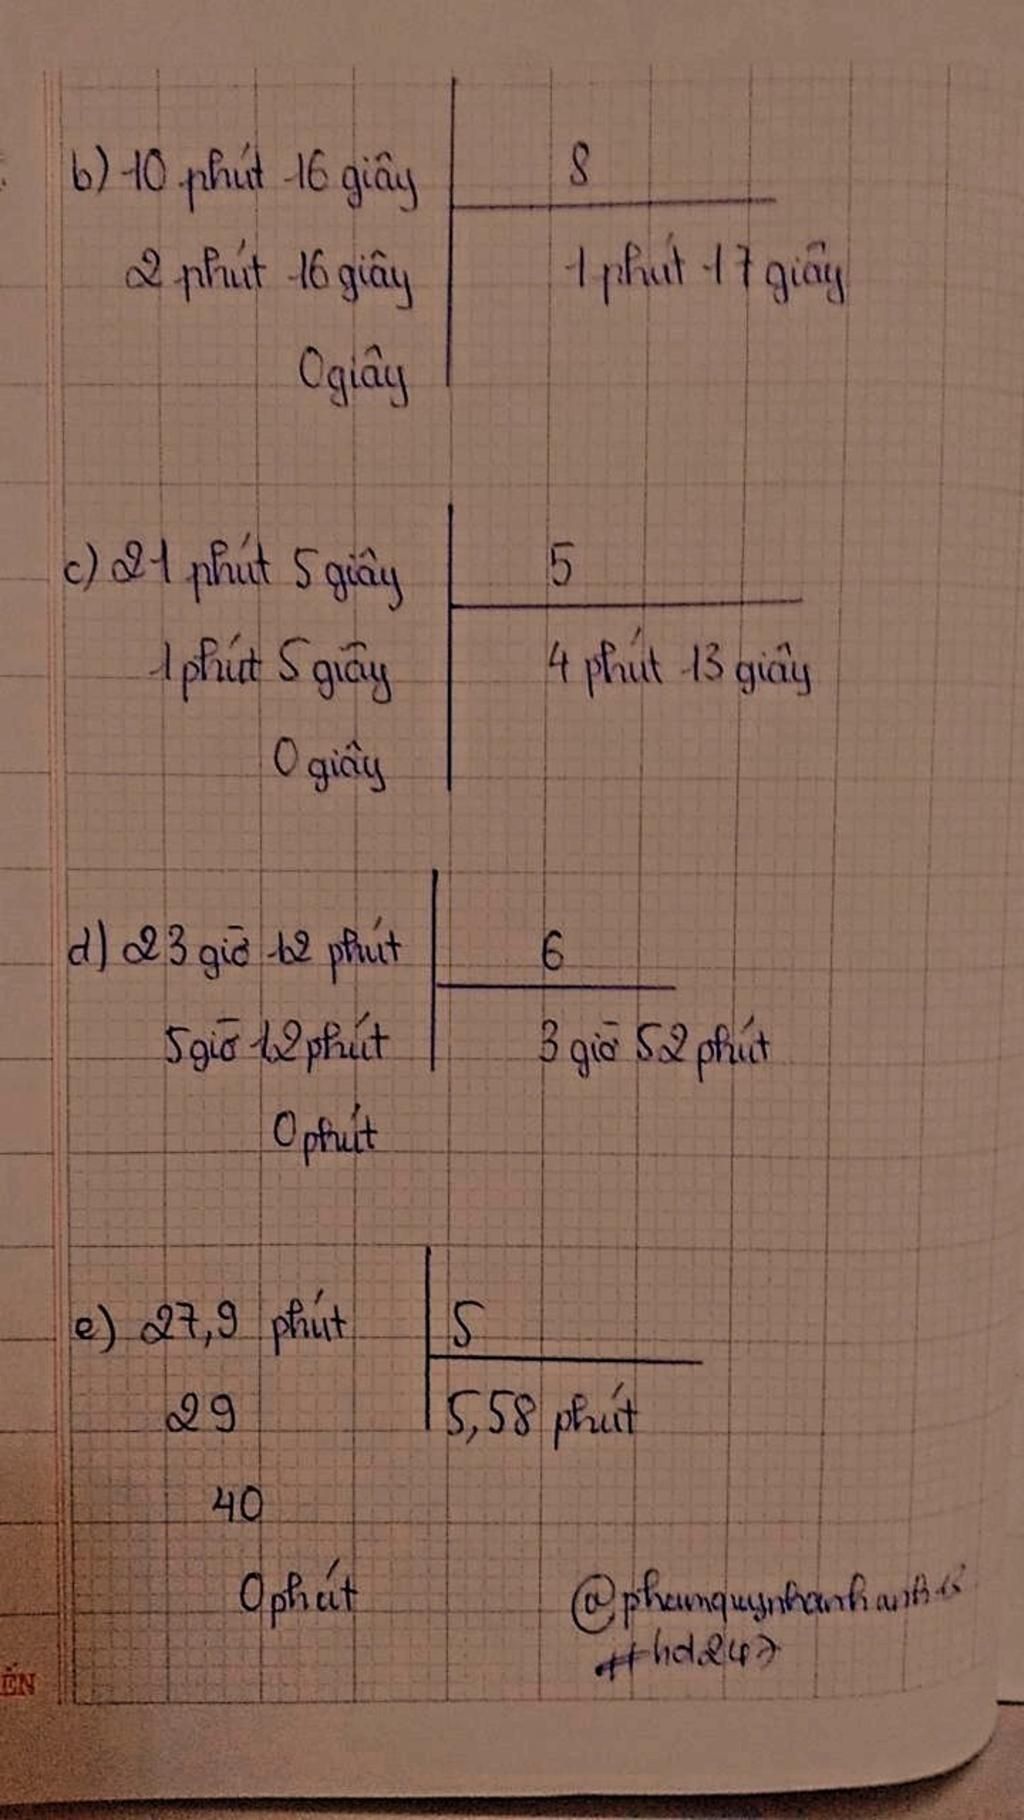 b) 10 phút 16 giây 8
2 phút 16 giây 1 phút 17 giây
0 giây
c) 21 phút 5 giây 5
1 phút 5 giây 4 phút 13 giây
0 giây
d) 23 giờ 12 phút 6
5 giờ 12 phút 3 giờ 52 phút
0 phút
e) 27,9 phút 5
29 5,58 phút
40
0 phút
#hd247
ẾN